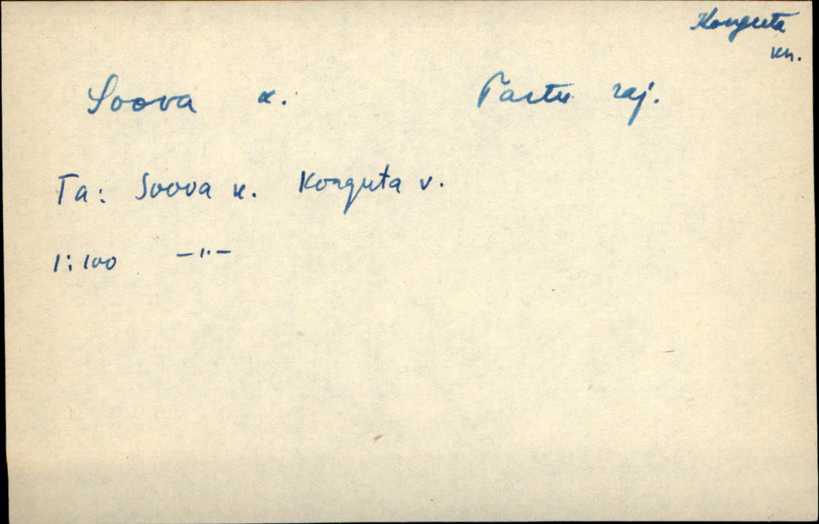 Konguta
kh.
Soova k. Tartu raj.
Ta: Soova k. Konguta v.
1:100 —"—